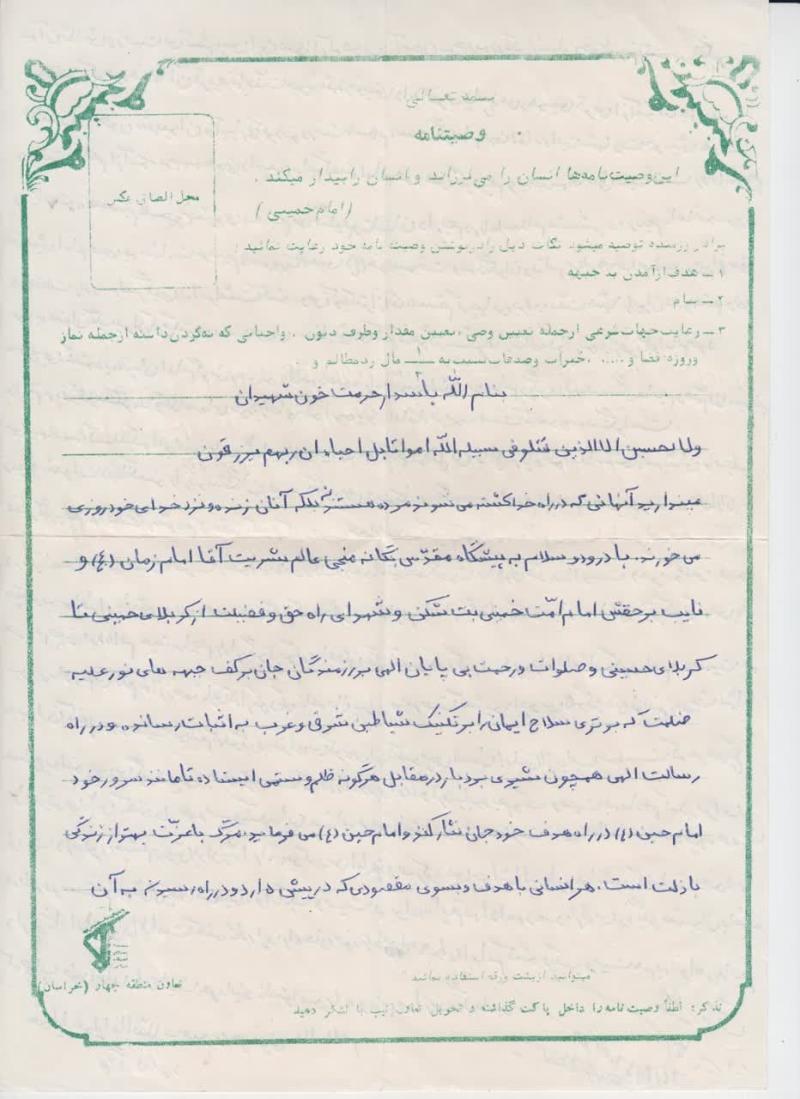 بسمه تعالی
وصیتنامه
این وصیت نامه‌ها انسان را می‌لرزاند و انسان را بیدار میکند .
(امام خمینی)
محل الصاق عکس
برادر رزمنده توصیه میشود نکات ذیل را در نوشتن وصیت نامه خود رعایت نمائید :
۱ ــ هدف از آمدن به جبهه
۲ ــ پیام
۳ ــ رعایت جهات شرعی از جمله تعیین وصی ، تعیین مقدار و طرف دیون . واجباتی که به گردن داشته از جمله نماز
و روزه قضا و ..... ، خیرات و صدقات نسبت به ۱/۳ مال رد مظالم و .
بنام الله پاسدار حرمت خون شهیدان
ولا تحسبن الاالذین قتلو فی سبیله الله امواتا بل احیاء ان ربهم یرزقون
مپندارید آنهائی که در راه خدا کشته می شوند مرده هستند نه بلکه آنان زنده و نزد خدای خود روزی
می خورند. با درود و سلام به پیشگاه مقدّس یگانه منجی عالم بشریت آقا امام زمان (ع) و
نایب برحقش امام امّت خمینی بت شکن و شهدای راه حق و فضیلت از کربلای خمینی تا
کربلای حسینی و صلوات و رحمت بی پایان الهی بر رزمندگان جان برکف جبهه های نور علیه
ظلمت که برتری سلاح ایمان را بر تکنیک شیاطین شرق و غرب به اثبات رسانده و در راه
رسالت الهی همچون شیری بردبار در مقابل هرگونه ظلم و ستمی ایستاده تا مانند سرور خود
امام حسین (ع) در راه هدف خود جان نثار کنند و امام حسین (ع) می فرماید: مرگ با عزّت بهتر از زندگی
با ذلت است. هر انسانی با هدف و بسوی مقصودی که در پیش دارد و در راه رسیدن به آن
میتوانید از پشت ورقه استفاده نمائید
تعاون منطقه چهار (خراسان)
تذکر: لطفاً وصیت نامه را داخل پاکت گذاشته و تحویل تعاون تیپ یا لشکر دهید